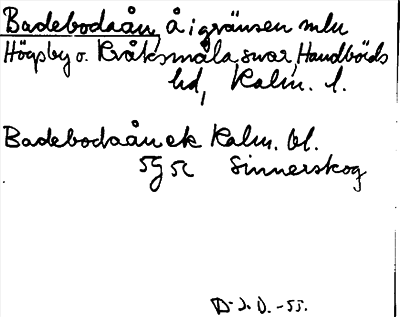 Badebodaån, å i gränsen mln
Högsby o. Kråksmåla snar, Handbörds
hd, Kalm. l.
Badebodaån ek Kalm. bl.
5g 5c Sinnerskog
D-J.O. -55.